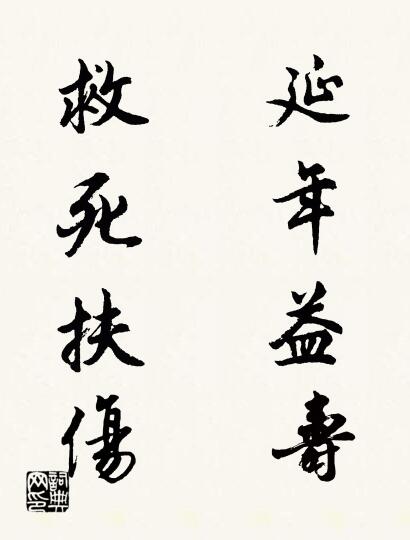 延年益壽
救死扶傷
詞典網印